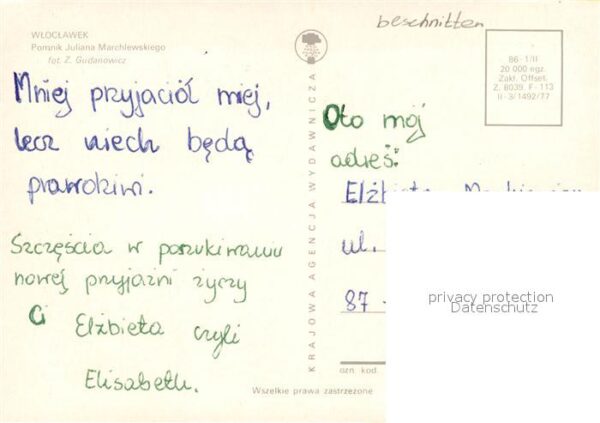 WŁOCŁAWEK
Pomnik Juliana Marchlewskiego
fot. Z. Gudanowicz
beschnitten
86-1/II
20 000 egz.
Zakł. Offset.
Z. 8039. F-113
II-3/1492/77
Mniej przyjaciół miej,
lecz niech będą
prawdziwi.
Szczęścia w poszukiwaniu
nowej przyjaźni życzy
Ci Elżbieta czyli
Elisabeth.
KRAJOWA AGENCJA WYDAWNICZA
Oto mój
adres:
Elżbieta
ul.
87 -
ozn. kod.
Wszelkie prawa zastrzeżone
privacy protection
Datenschutz